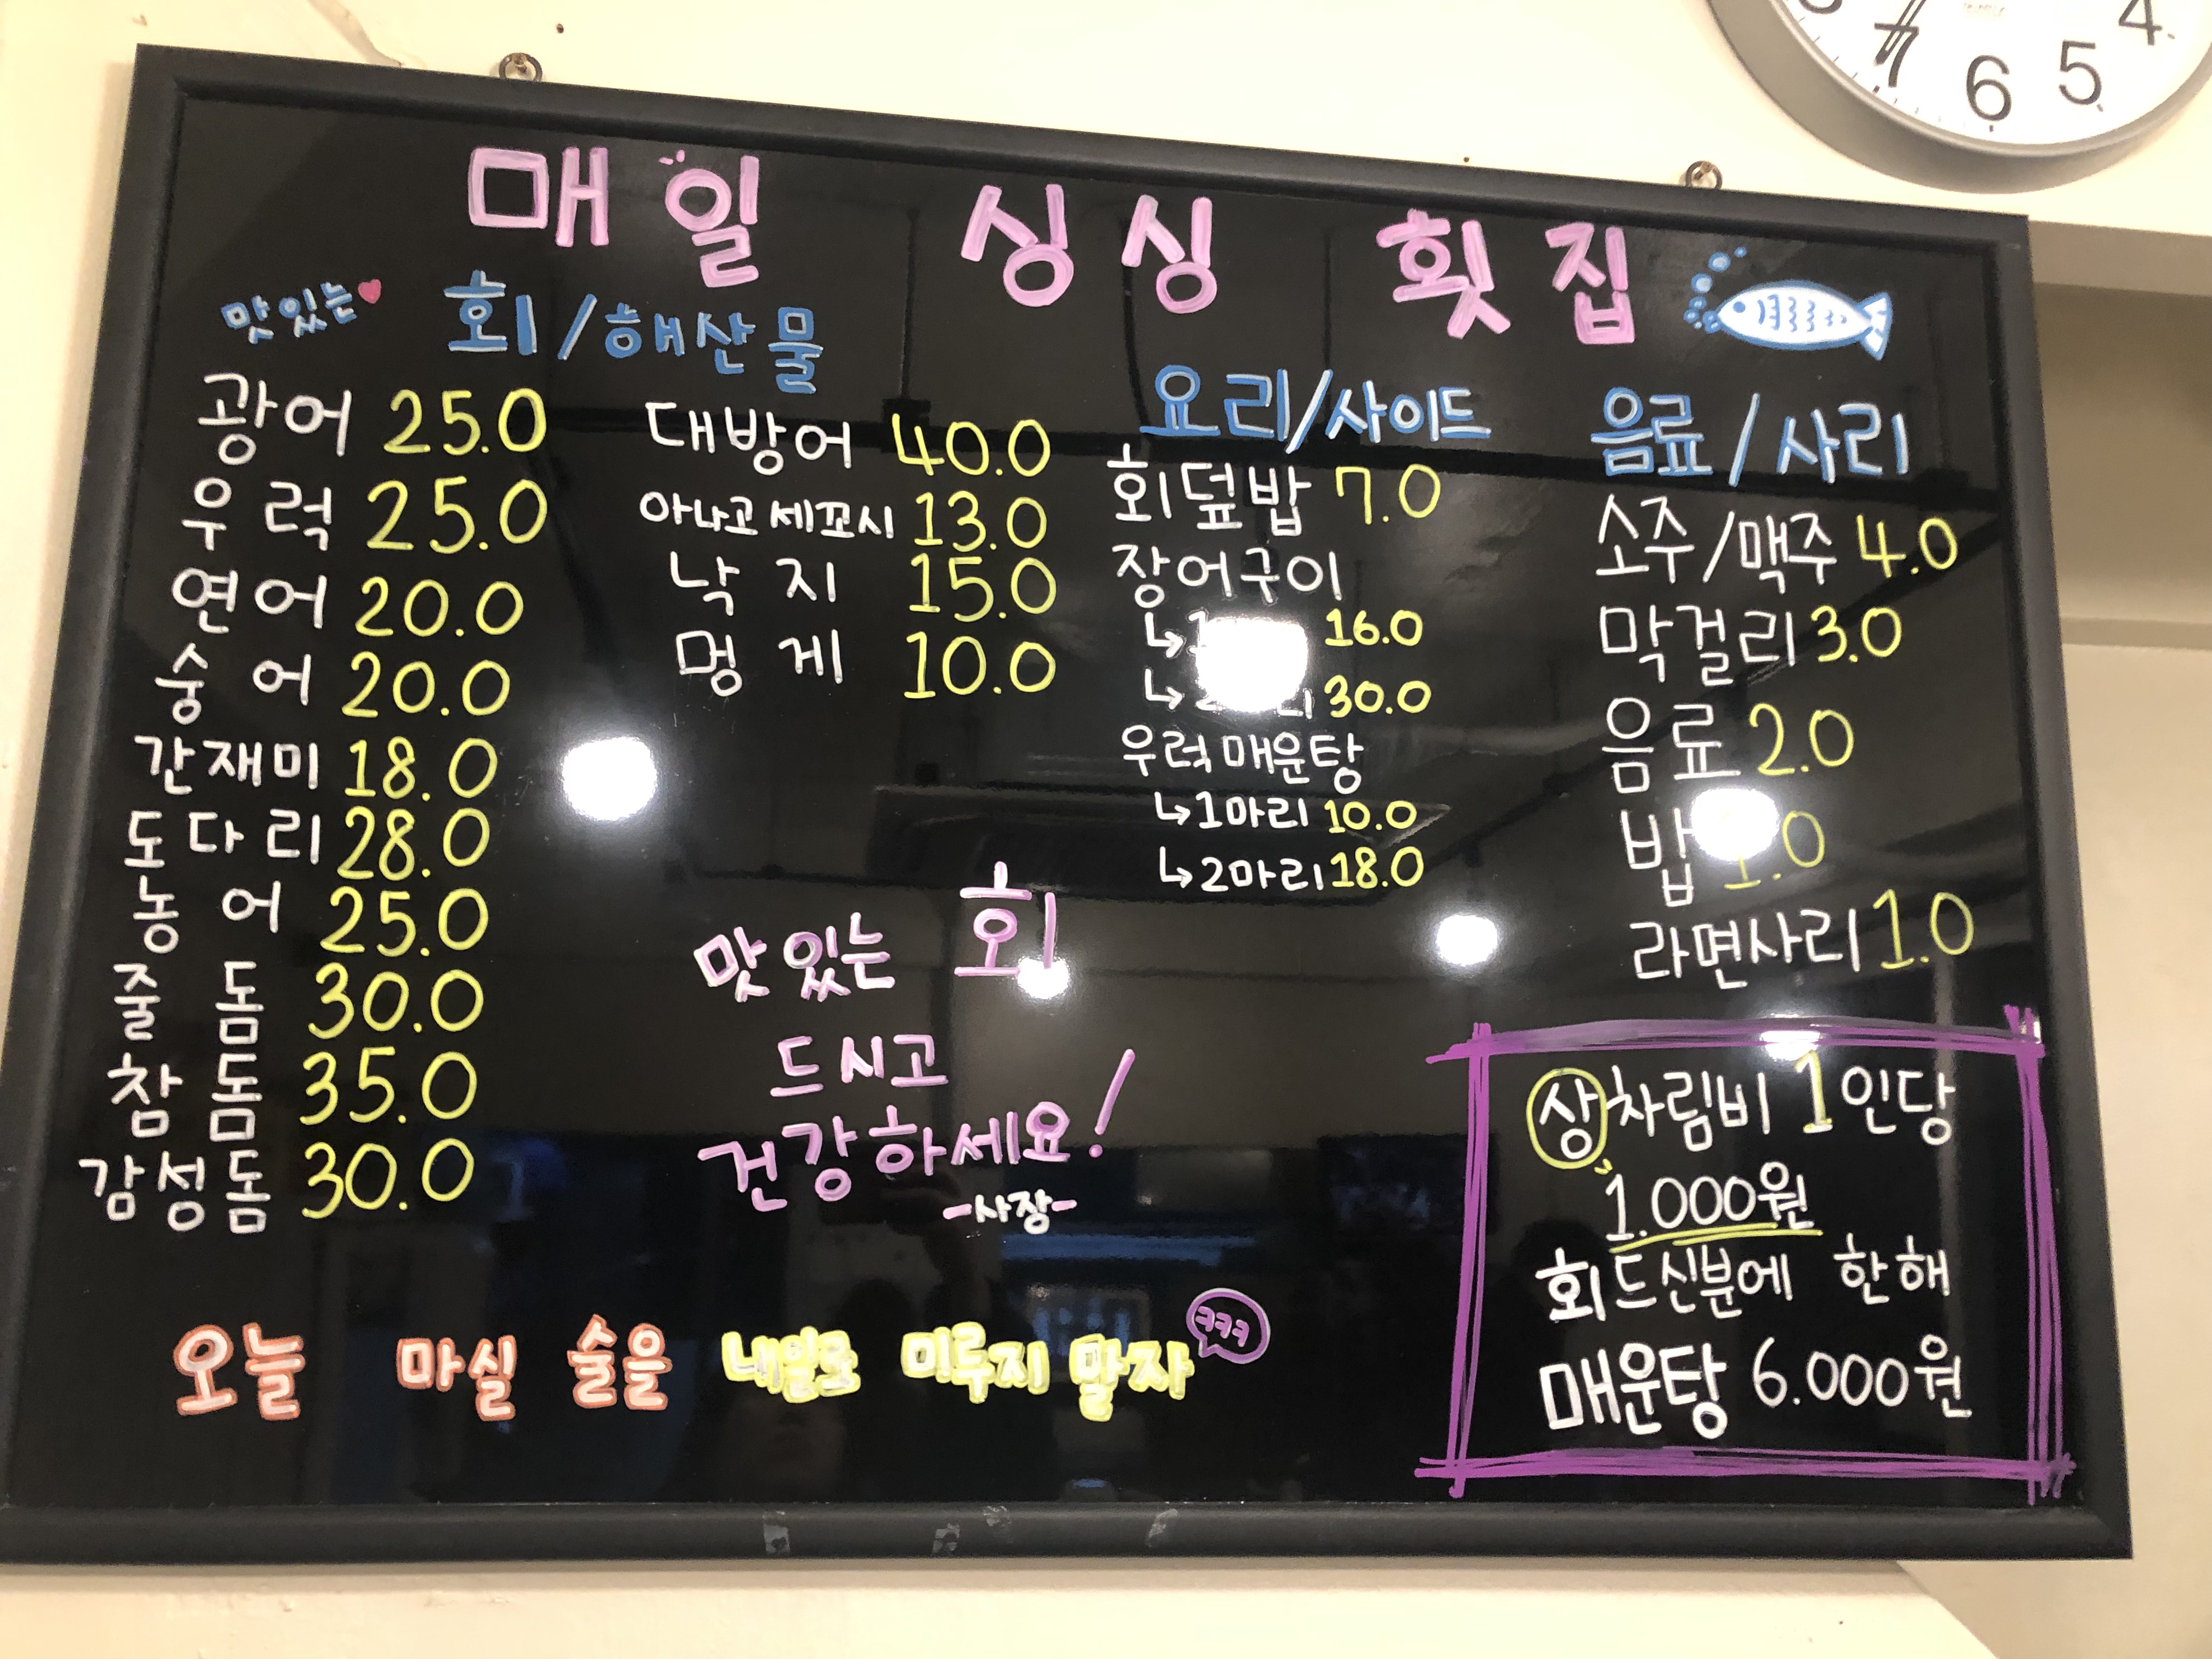 매일 싱싱 횟집
맛있는 회/해산물
광어 25.0
우럭 25.0
연어 20.0
숭어 20.0
간재미 18.0
도다리 28.0
농어 25.0
줄돔 30.0
참돔 35.0
감성돔 30.0
대방어 40.0
아나고세꼬시 13.0
낙지 15.0
멍게 10.0
요리/사이드
회덮밥 7.0
장어구이
16.0
30.0
우럭매운탕
↳1마리 10.0
↳2마리 18.0
음료/사리
소주/맥주 4.0
막걸리 3.0
음료 2.0
밥 1.0
라면사리 1.0
맛있는 회
드시고
건강하세요!
-사장-
상차림비 1인당
1.000원
회드신분에 한해
매운탕 6.000원
오늘 마실 술을 내일로 미루지 말자 ㅋㅋㅋ
7 6 5 4